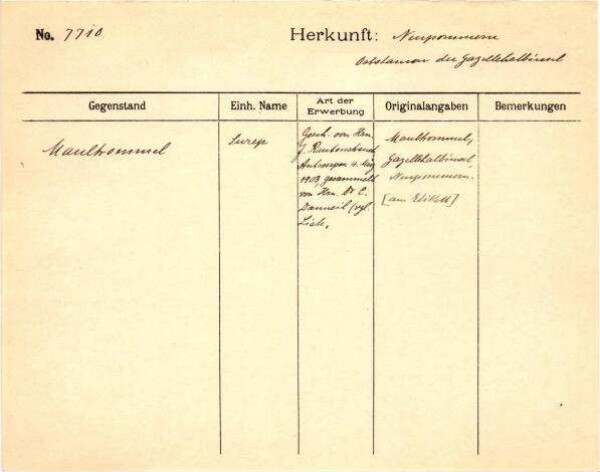 No. 7710
Herkunft: Neupommern
der Gazellehalbinsel
Gegenstand
Einh. Name
Art der
Erwerbung
Originalangaben
Bemerkungen
Maultrommel
Gesch. von Hrn.
J.
Antwerpen 4. Mai
1903, gesammelt
von Hrn. Dr C.
Danneil (vgl.
Liste.
Maultrommel,
Gazellehalbinsel
Neupommern.
[am Etikett]